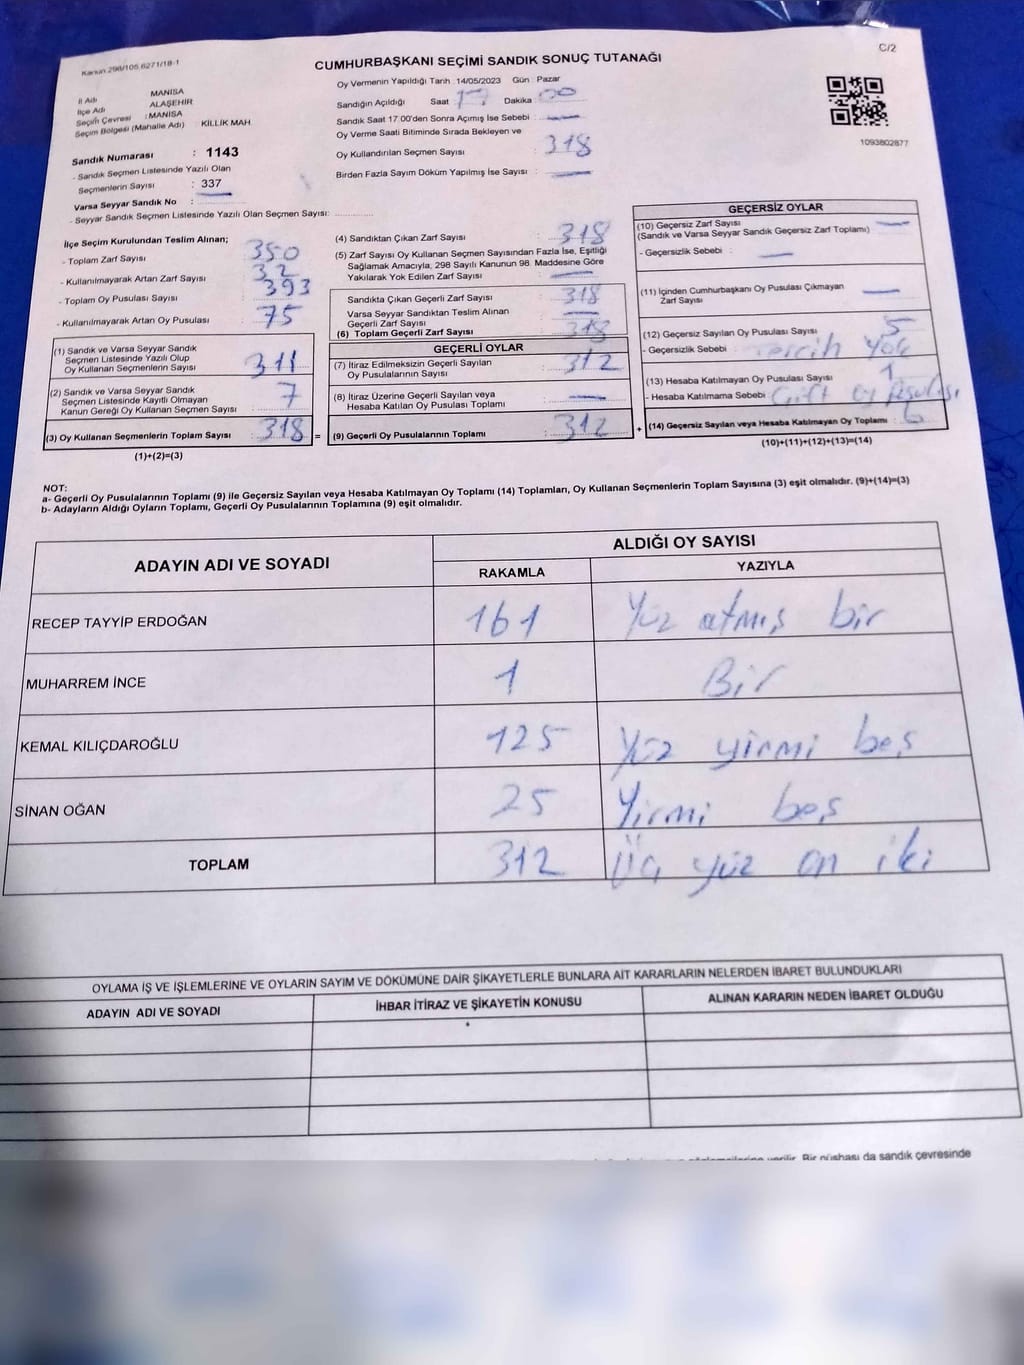 Kanun 298/105 6271/18-1
C/2
CUMHURBAŞKANI SEÇİMİ SANDIK SONUÇ TUTANAĞI
İl Adı MANİSA
İlçe Adı ALAŞEHİR
Seçim Çevresi : MANİSA
Seçim Bölgesi (Mahalle Adı) KİLLİK MAH.
Oy Vermenin Yapıldığı Tarih 14/05/2023 Gün Pazar
Sandığın Açıldığı Saat 17 Dakika 00
Sandık Saat 17:00'den Sonra Açımış İse Sebebi :
Oy Verme Saati Bitiminde Sırada Bekleyen ve
Oy Kullandırılan Seçmen Sayısı : 318
Birden Fazla Sayım Döküm Yapılmış İse Sayısı :
1093802877
Sandık Numarası : 1143
- Sandık Seçmen Listesinde Yazılı Olan
Seçmenlerin Sayısı : 337
Varsa Seyyar Sandık No :
- Seyyar Sandık Seçmen Listesinde Yazılı Olan Seçmen Sayısı:
İlçe Seçim Kurulundan Teslim Alınan;
- Toplam Zarf Sayısı : 350
- Kullanılmayarak Artan Zarf Sayısı : 32
- Toplam Oy Pusulası Sayısı : 393
- Kullanılmayarak Artan Oy Pusulası : 75
(1) Sandık ve Varsa Seyyar Sandık
Seçmen Listesinde Yazılı Olup
Oy Kullanan Seçmenlerin Sayısı : 311
(2) Sandık ve Varsa Seyyar Sandık
Seçmen Listesinde Kayıtlı Olmayan
Kanun Gereği Oy Kullanan Seçmen Sayısı : 7
(3) Oy Kullanan Seçmenlerin Toplam Sayısı : 318 =
(1)+(2)=(3)
(4) Sandıktan Çıkan Zarf Sayısı : 318
(5) Zarf Sayısı Oy Kullanan Seçmen Sayısından Fazla İse, Eşitliği
Sağlamak Amacıyla, 298 Sayılı Kanunun 98. Maddesine Göre
Yakılarak Yok Edilen Zarf Sayısı :
Sandıkta Çıkan Geçerli Zarf Sayısı : 318
Varsa Seyyar Sandıktan Teslim Alınan
Geçerli Zarf Sayısı :
(6) Toplam Geçerli Zarf Sayısı : 318
GEÇERLİ OYLAR
(7) İtiraz Edilmeksizin Geçerli Sayılan
Oy Pusulalarının Sayısı : 312
(8) İtiraz Üzerine Geçerli Sayılan veya
Hesaba Katılan Oy Pusulası Toplamı :
(9) Geçerli Oy Pusulalarının Toplamı : 312 +
GEÇERSİZ OYLAR
(10) Geçersiz Zarf Sayısı
(Sandık ve Varsa Seyyar Sandık Geçersiz Zarf Toplamı) :
- Geçersizlik Sebebi :
(11) İçinden Cumhurbaşkanı Oy Pusulası Çıkmayan
Zarf Sayısı :
(12) Geçersiz Sayılan Oy Pusulası Sayısı : 5
- Geçersizlik Sebebi : Tercih Yok
(13) Hesaba Katılmayan Oy Pusulası Sayısı : 1
- Hesaba Katılmama Sebebi : Çift oy Pusulası
(14) Geçersiz Sayılan veya Hesaba Katılmayan Oy Toplamı : 6
(10)+(11)+(12)+(13)=(14)
NOT:
a- Geçerli Oy Pusulalarının Toplamı (9) ile Geçersiz Sayılan veya Hesaba Katılmayan Oy Toplamı (14) Toplamları, Oy Kullanan Seçmenlerin Toplam Sayısına (3) eşit olmalıdır. (9)+(14)=(3)
b- Adayların Aldığı Oyların Toplamı, Geçerli Oy Pusulalarının Toplamına (9) eşit olmalıdır.
ADAYIN ADI VE SOYADI
ALDIĞI OY SAYISI
RAKAMLA YAZIYLA
RECEP TAYYİP ERDOĞAN 161 Yüz atmış bir
MUHARREM İNCE 1 Bir
KEMAL KILIÇDAROĞLU 125 Yüz yirmi beş
SİNAN OĞAN 25 Yirmi beş
TOPLAM 312 Üç yüz on iki
OYLAMA İŞ VE İŞLEMLERİNE VE OYLARIN SAYIM VE DÖKÜMÜNE DAİR ŞİKAYETLERLE BUNLARA AİT KARARLARIN NELERDEN İBARET BULUNDUKLARI
ADAYIN ADI VE SOYADI İHBAR İTİRAZ VE ŞİKAYETİN KONUSU ALINAN KARARIN NEDEN İBARET OLDUĞU
verilir. Bir nüshası da sandık çevresinde